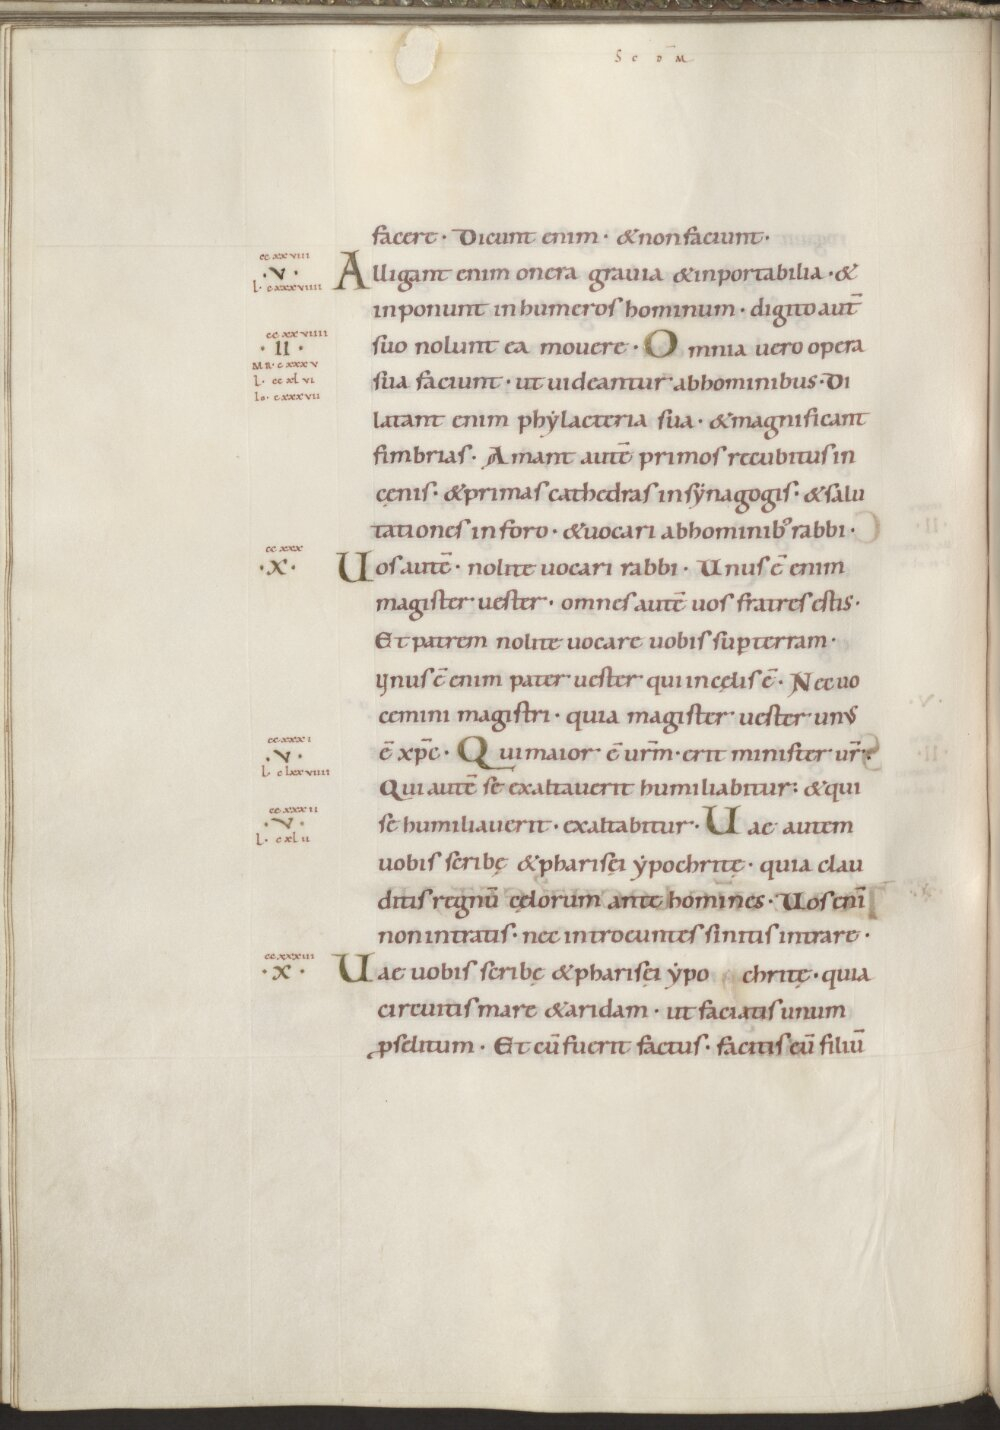 Sc dm̄
facere · Dicunt enim · & non faciunt ·
cc xx viiii
· v ·
L · c xxx viiii
Alligant enim onera grauia & inportabilia · &
inponunt in humeros hominum · digito aut̄
cc xx viiii
· II ·
MR · c xxx v
L · cc xl vi
Io · c xxx vii
suo nolunt ea mouere · Omnia uero opera
sua faciunt · ut uideantur ab hominibus · Di
latant enim phẏlacteria sua · & magnificant
fimbrias · Amant autē primos recubitus in
cęnis · & primas cathedras in sẏnagogis · & salu
tationes in foro · & uocari ab hominib' rabbi ·
cc xxx
· x ·
Uos autē · nolite uocari rabbi · Unus ē enim
magister uester · omnes autē uos fratres estis ·
Et patrem nolite uocare uobis sup terram ·
ynus ē enim pater uester qui in cęlis ē · Nec uo
cemini magistri · quia magister uester unus
cc xxx i
· v ·
L · c lxx viiii
ē xp̄c · Qui maior ē ur̄m · erit minister ur̄ ·
Qui autē se exaltauerit humiliabitur : & qui
cc xxx ii
· v ·
L · c xl ii
se humiliauerit · exaltabitur · Uae autem
uobis scribę & pharisęi ẏpochritę · quia clau
ditis regnū cęlorum ante homines · Uos enī
non intratis · nec introeuntes sinitis intrare ·
cc xxx iii
· x ·
Uae uobis scribę & pharisęi ẏpo chritę · quia
circuitis mare & aridam · ut faciatis unum
ꝓselitum · Et cū fuerit factus · facitis eū filiū